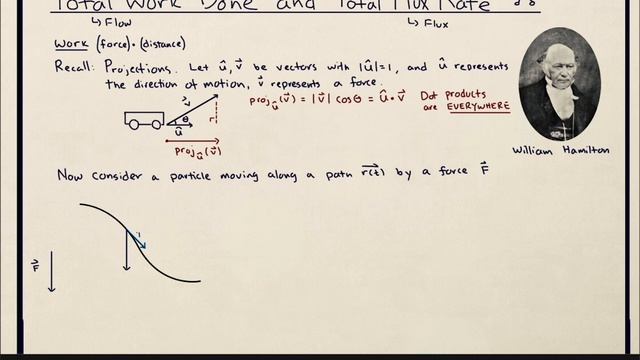 Total Work Done and Total Flux Rate
↳ Flow
↳ Flux
Work (force)·(distance)
Recall: Projections. Let û, v⃗ be vectors with |û|=1, and û represents
the direction of motion, v⃗ represents a force.
v⃗
θ
û
proj_û(v⃗)
proj_û(v⃗) = |v⃗| cosθ = û·v⃗
Dot products
are EVERYWHERE
William Hamilton
Now consider a particle moving along a path r⃗(t) by a force F⃗
F⃗